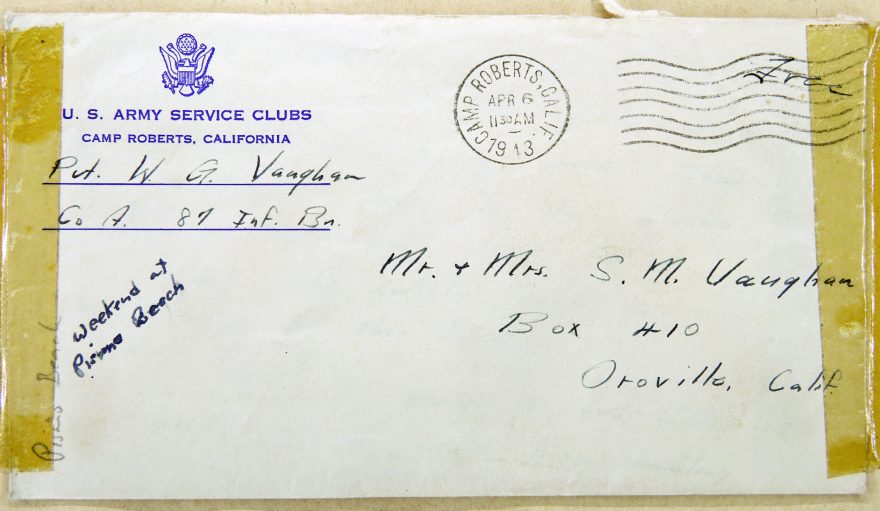 U. S. ARMY SERVICE CLUBS
CAMP ROBERTS, CALIFORNIA
Pvt. W. G. Vaughan
Co A. 87 Inf. Bn.
CAMP ROBERTS, CALIF.
APR 6
11 30 AM
1943
Free
Mr. + Mrs. S. M. Vaughan
Box 410
Oroville, Calif.
Weekend at
Pismo Beach
Pismo Beach